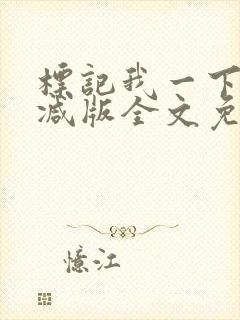 標記我一下
减版全文免
憶江